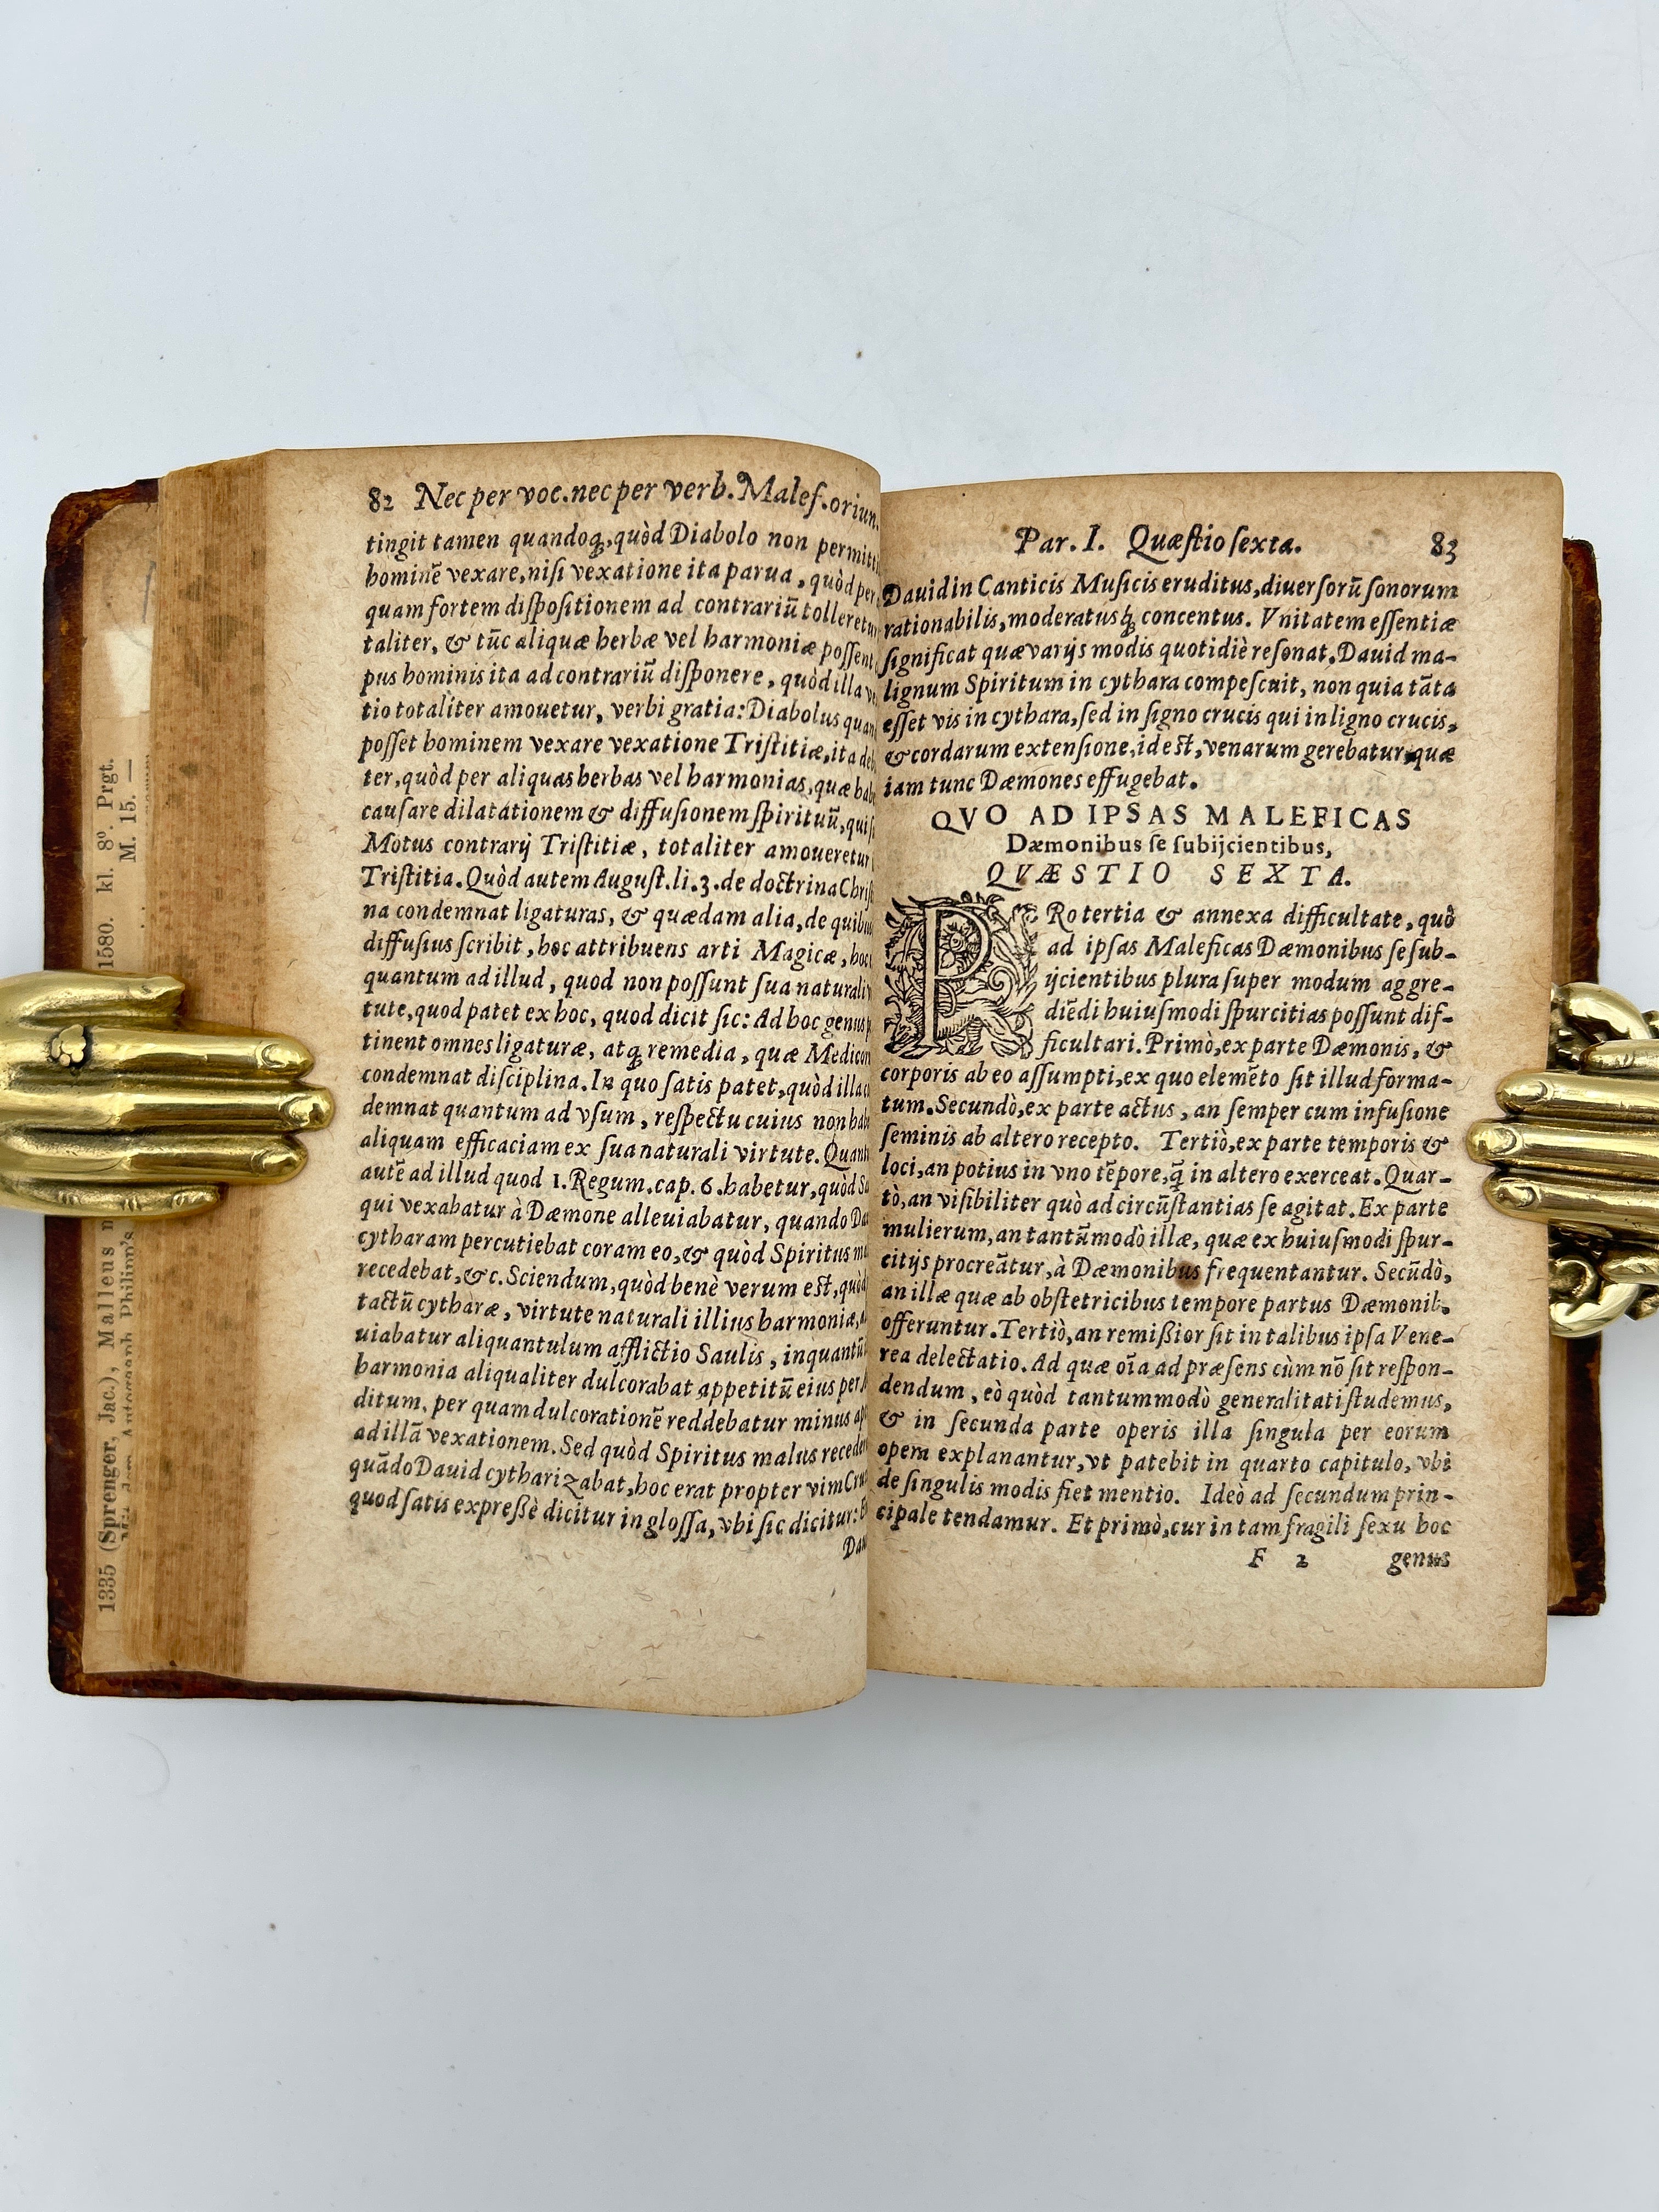 1335 (Sprenger, Jac.), Malleus
1580. kl. 8º. Prgt.
M. 15. —
82 Nec per voc. nec per verb. Malef. oriun.
tingit tamen quandoq́;, quòd Diabolo non permitti
hominẽ vexare, niſi vexatione ita parua, quòd per
quam fortem diſpoſitionem ad contrariũ tolleretur
taliter, & tũc aliquæ herbæ vel harmoniæ poſſent
pus hominis ita ad contrariũ diſponere, quòd illa
tio totaliter amouetur, verbi gratia: Diabolus quan
poſſet hominem vexare vexatione Triſtitiæ, ita deb
ter, quòd per aliquas herbas vel harmonias, quæ hab
cauſare dilatationem & diffuſionem ſpirituũ, qui
Motus contrarij Triſtitiæ, totaliter amoueretur
Triſtitia. Quòd autem Auguſt. li. 3. de doctrina Chriſ
na condemnat ligaturas, & quædam alia, de quibus
diffuſius ſcribit, hoc attribuens arti Magicæ, hoc
quantum ad illud, quod non poſſunt ſua naturali
tute, quod patet ex hoc, quod dicit ſic: Ad hoc genus
tinent omnes ligaturæ, atq́; remedia, quæ Medicor
condemnat diſciplina. In quo ſatis patet, quòd illa
demnat quantum ad vſum, reſpectu cuius non hab
aliquam efficaciam ex ſua naturali virtute. Quant
autẽ ad illud quod 1. Regum. cap. 6. habetur, quòd Sa
qui vexabatur à Dæmone alleuiabatur, quando Da
cytharam percutiebat coram eo, & quòd Spiritus ma
recedebat, &c. Sciendum, quòd benè verum eſt, quòd
tactũ cytharæ, virtute naturali illius harmoniæ,
uiabatur aliquantulum afflictio Saulis, inquantũ
harmonia aliqualiter dulcorabat appetitũ eius per
ditum, per quam dulcorationẽ reddebatur minus ap
ad illã vexationem. Sed quòd Spiritus malus receder
quãdo Dauid cytharizabat, hoc erat propter vim Cruc
quod ſatis expreßè dicitur in gloſſa, vbi ſic dicitur: E
Dau
Par. I. Quæſtio ſexta. 83
Dauid in Canticis Muſicis eruditus, diuerſorũ ſonorum
rationabilis, moderatusq́; concentus. Vnitatem eſſentiæ
ſignificat quæ varijs modis quotidiè reſonat. Dauid ma-
lignum Spiritum in cythara compeſcuit, non quia tãta
eſſet vis in cythara, ſed in ſigno crucis qui in ligno crucis,
& cordarum extenſione, id eſt, venarum gerebatur, quæ
iam tunc Dæmones effugebat.
QVO AD IPSAS MALEFICAS
Dæmonibus ſe ſubijcientibus,
QVÆSTIO SEXTA.
PRo tertia & annexa difficultate, quò
ad ipſas Maleficas Dæmonibus ſe ſub-
ijcientibus plura ſuper modum aggre-
diẽdi huiuſmodi ſpurcitias poſſunt dif-
ficultari. Primò, ex parte Dæmonis, &
corporis ab eo aſſumpti, ex quo elemẽto ſit illud forma-
tum. Secundò, ex parte actus, an ſemper cum infuſione
ſeminis ab altero recepto. Tertiò, ex parte temporis &
loci, an potius in vno tẽpore, q̃ in altero exerceat. Quar-
tò, an viſibiliter quò ad circũſtantias ſe agitat. Ex parte
mulierum, an tantũmodò illæ, quæ ex huiuſmodi ſpur-
citijs procreãtur, à Dæmonibus frequentantur. Secũdò,
an illæ quæ ab obſtetricibus tempore partus Dæmonib.
offeruntur. Tertiò, an remißior ſit in talibus ipſa Vene-
rea delectatio. Ad quæ oĩa ad præſens cùm nõ ſit reſpon-
dendum, eò quòd tantummodò generalitati ſtudemus,
& in ſecunda parte operis illa ſingula per eorum
opera explanantur, vt patebit in quarto capitulo, vbi
de ſingulis modis fiet mentio. Ideò ad ſecundum prin-
cipale tendamur. Et primò, cur in tam fragili ſexu hoc
F 2 genus